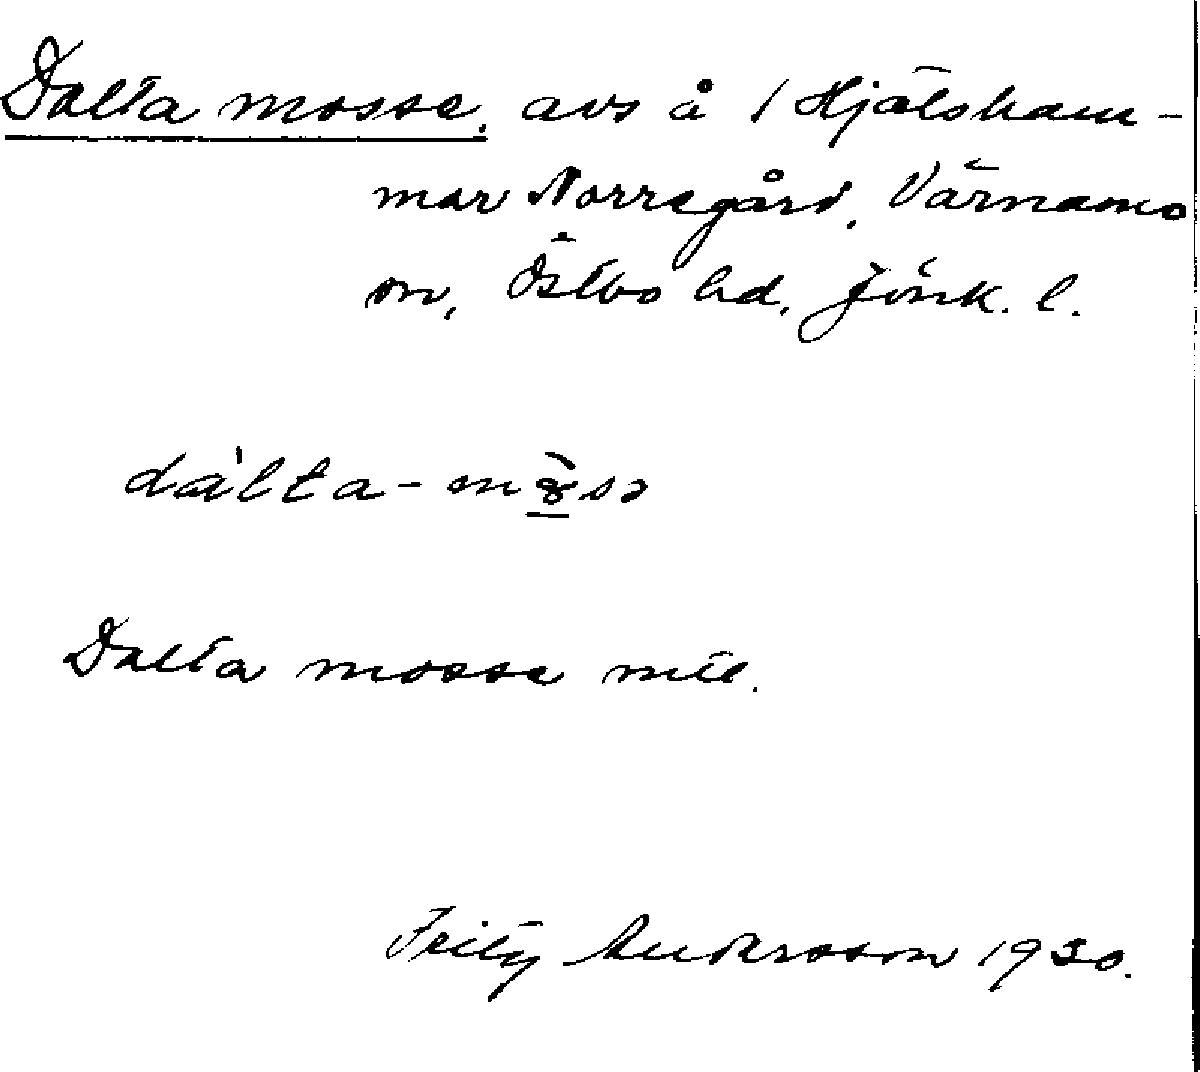 Dalta mosse, avs å 1 Hjälsham-
mar Norregård, Värnamo
sn, Östbo hd, Jönk. l.
dálta-mòsə
Dalta mosse mtl.
Fritz Andersson 1930.